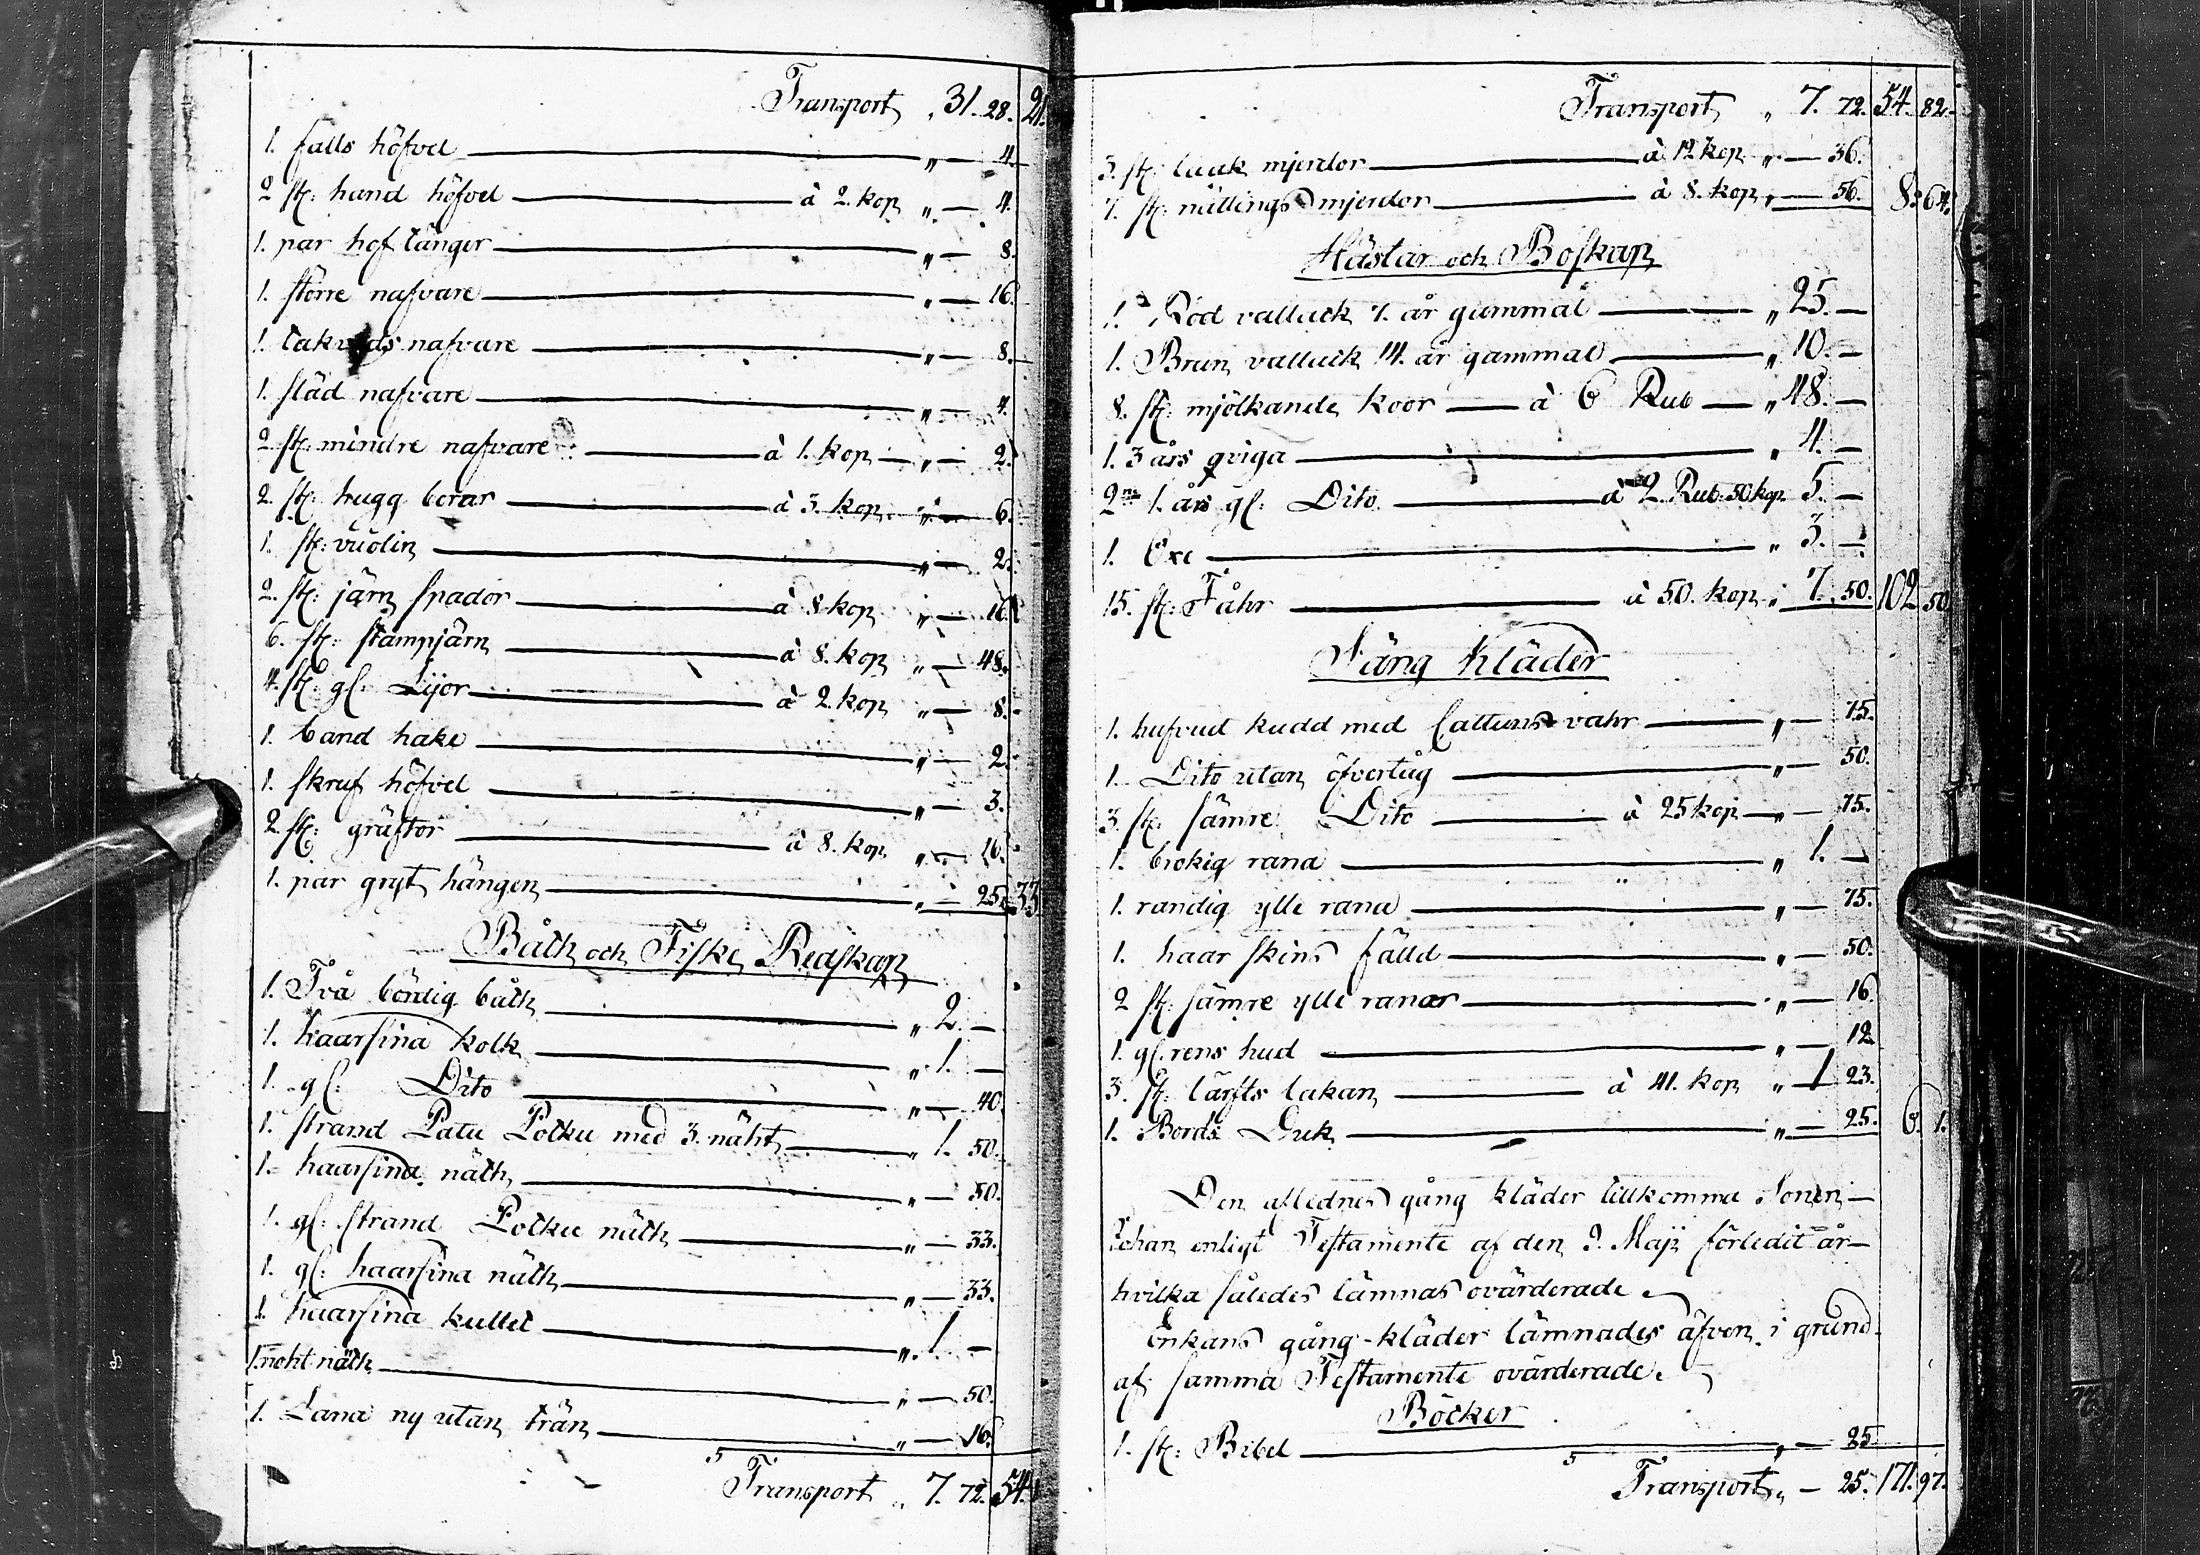 Transport „ 31. 28. 21.
1. falls höfvel — „ — 4.
2 st: hand höfvel — à 2. kop „ — 4.
1. par hof tänger — „ — 8.
1. större nafvare — „ — 16.
1. takveds nafvare — „ — 8.
1. släd nafvare — „ — 4.
2 st: mindre nafvare — à 1. kop — „ — 2.
2. st: hugg borar — à 3. kop „ — 6.
1. st: vuolin — „ — 2.
2. st: järn spador — à 8 kop „ — 16.
6. st: stampjärn — à 8. kop „ — 48.
4. st: gl: Lijor — à 2. kop „ — 8.
1. band hake — „ — 2.
1. skruf höfvel — „ — 3.
2 st: gräftor — à 8. kop „ — 16.
1. par gryt hängen — „ — 25. 33
Båth och Fiske Redskap
1. Två bördig båth — „ 2. —
1. haarsina kolk — „ 1. —
1. gl: Dito — „ — 40.
1. strand Patu Polku med 3. näht — „ 1. 50.
1. haarsina näth — „ — 50.
1. gl: strand Polku näth — „ — 33.
1. gl: haarsina näth — „ — 33.
1. haarsina kullet — „ 1. —
1. noht näth — „ — 50.
1. Lana ny utan trän — „ — 16.
Transport „ 7. 72. 54.
Transport „ 7. 72. 54. 82.
3. st: laak mjerdor — à 12 kop „ — 36.
7. st: nällings mjerdor — à 8. kop „ — 56. 8. 64.
Hästar och Boskap
1. Röd vallack 7. år gammal — „ 25. —
1. Brun vallack 14. år gammal — „ 10. —
8. st: mjölkande koor — à 6 Rub — „ 48. —
1. 3 års qviga — „ 4. —
2ne 1. års gl: Dito — à 2 Rub: 50 kop 5. —
1. Oxe — „ 3. —
15. st: Fåhr — à 50. kop „ 7. 50. 102 50
Säng Kläder
1. hufvud kudd med Cattuns vahr — „ — 75.
1. Dito utan öfvertåg — „ — 50.
3. st: sämre Dito — à 25 kop — „ — 75.
1. brokig rana — „ 1. —
1. randig ylle rana — „ — 75.
1. haar skins fälld — „ — 50.
2 st: sämre ylle ranor — „ — 16.
1. gl. rens hud — „ — 12
3. st: lärfts lakan — à 41. kop „ 1 23.
1. Bords Duk — „ — 25. 6. 1.
Den aflednes gång kläder tillkomma Sonen
Johan enligt Testamente af den 9. Maji förledit år
hvilka således lämnas ovärderade.
Enkans gång-kläder lämnades äfven i grund
af samma Testamente ovärderade.
Böcker
1. st: Bibel — „ — 25
Transport „ — 25. 171. 97.